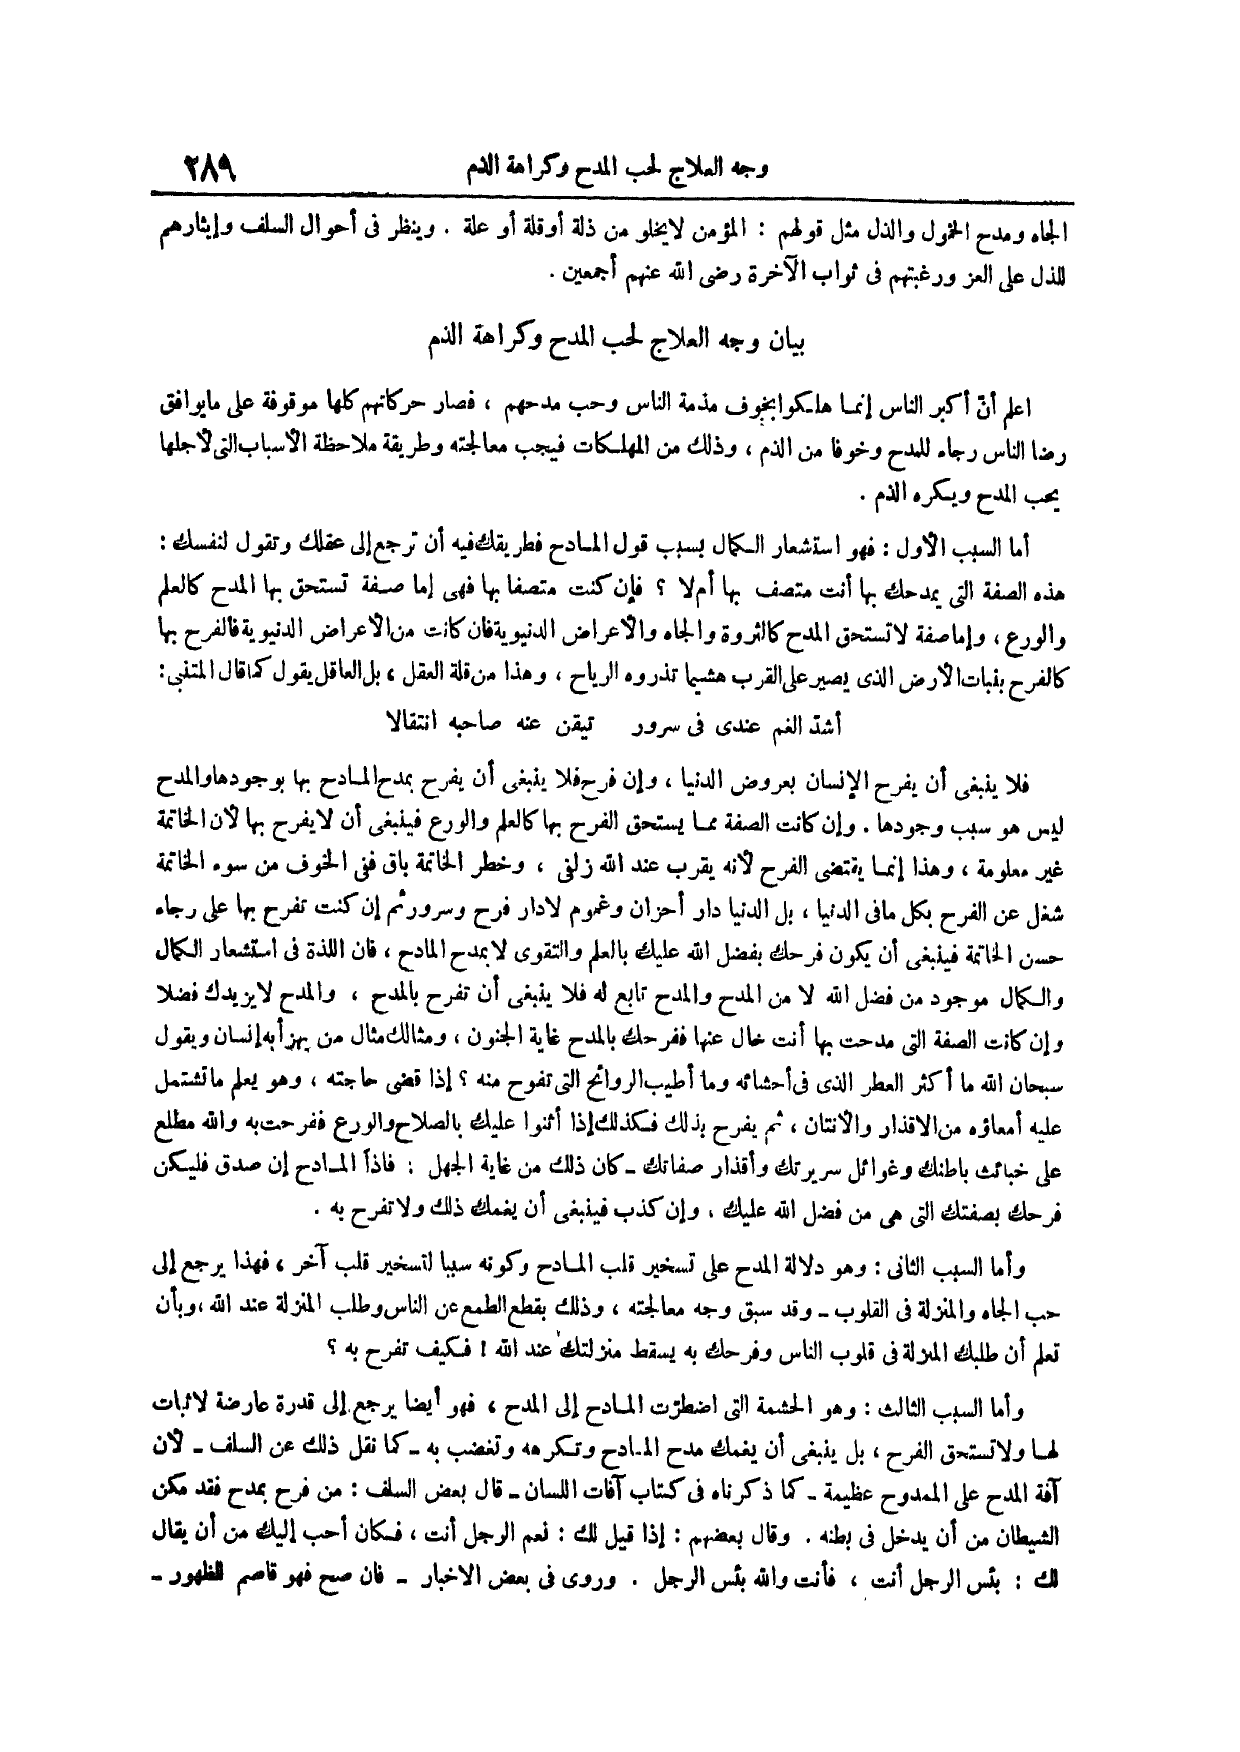 وجه العلاج لحب المدح وكراهة الذم ٢٨٩
الجاه ومدح الخمول والذل مثل قولهم : المؤمن لايخلو من ذلة أوقلة أو علة . وينظر فى أحوال السلف وإيثارهم
للذل على العز ورغبتهم فى ثواب الآخرة رضى الله عنهم أجمعين .
بيان وجه العلاج لحب المدح وكراهة الذم
اعلم أنّ أكبر الناس إنما هلكوا بخوف مذمة الناس وحب مدحهم ، فصار حركاتهم كلها موقوفة على مايوافق
رضا الناس رجاء للمدح وخوفا من الذم ، وذلك من المهلكات فيجب معالجته وطريقة ملاحظة الأسباب التى لأجلها
يحب المدح ويكره الذم .
أما السبب الأول : فهو استشعار الكمال بسبب قول المادح فطريقك فيه أن ترجع إلى عقلك وتقول لنفسك :
هذه الصفة التى يمدحك بها أنت متصف بها أم لا ؟ فإن كنت متصفا بها فهى إما صفة تستحق بها المدح كالعلم
والورع ، وإما صفة لاتستحق المدح كالثروة والجاه والأعراض الدنيوية فان كانت من الأعراض الدنيوية فالفرح بها
كالفرح بنبات الأرض الذى يصير على القرب هشيما تذروه الرياح ، وهذا من قلة العقل ، بل العاقل يقول كما قال المتنبى :
أشدّ الغم عندى فى سرور تيقن عنه صاحبه انتقالا
فلا ينبغى أن يفرح الإنسان بعروض الدنيا ، وإن فرح فلا ينبغى أن يفرح بمدح المادح بها بوجودها والمدح
ليس هو سبب وجودها . وإن كانت الصفة مما يستحق الفرح بها كالعلم والورع فينبغى أن لايفرح بها لأن الخاتمة
غير معلومة ، وهذا إنما يقتضى الفرح لأنه يقرب عند الله زلفى ، وخطر الخاتمة باق ففى الخوف من سوء الخاتمة
شغل عن الفرح بكل مافى الدنيا ، بل الدنيا دار أحزان وغموم لادار فرح وسرور ثم إن كنت تفرح بها على رجاء
حسن الخاتمة فينبغى أن يكون فرحك بفضل الله عليك بالعلم والتقوى لابمدح المادح ، فان اللذة فى استشعار الكمال
والكمال موجود من فضل الله لا من المدح والمدح تابع له فلا ينبغى أن تفرح بالمدح ، والمدح لايزيدك فضلا
وإن كانت الصفة التى مدحت بها أنت خال عنها ففرحك بالمدح غاية الجنون ، ومثالك مثال من يهزأ به إنسان ويقول
سبحان الله ما أكثر العطر الذى فى أحشائه وما أطيب الروائح التى تفوح منه ؟ إذا قضى حاجته ، وهو يعلم ماتشتمل
عليه أمعاؤه من الاقذار والأنتان ، ثم يفرح بذلك فكذلك إذا أثنوا عليك بالصلاح والورع ففرحت به والله مطلع
على خبائث باطنك وغوائل سريرتك وأقذار صفاتك ـ كان ذلك من غاية الجهل ؛ فاذاً المادح إن صدق فليكن
فرحك بصفتك التى هى من فضل الله عليك ، وإن كذب فينبغى أن يغمك ذلك ولاتفرح به .
وأما السبب الثانى : وهو دلالة المدح على تسخير قلب المادح وكونه سببا لتسخير قلب آخر ، فهذا يرجع إلى
حب الجاه والمنزلة فى القلوب ـ وقد سبق وجه معالجته ، وذلك بقطع الطمع عن الناس وطلب المنزلة عند الله ، وبأن
تعلم أن طلبك المنزلة فى قلوب الناس وفرحك به يسقط منزلتك عند الله ! فكيف تفرح به ؟
وأما السبب الثالث : وهو الحشمة التى اضطرّت المادح إلى المدح ، فهو أيضا يرجع إلى قدرة عارضة لاثبات
لها ولاتستحق الفرح ، بل ينبغى أن يغمك مدح المادح وتكرهه وتغضب به ـ كما نقل ذلك عن السلف ـ لأن
آفة المدح على الممدوح عظيمة ـ كما ذكرناه فى كتاب آفات اللسان ـ قال بعض السلف : من فرح بمدح فقد مكن
الشيطان من أن يدخل فى بطنه . وقال بعضهم : إذا قيل لك : نعم الرجل أنت ، فكان أحب إليك من أن يقال
لك : بئس الرجل أنت ، فأنت والله بئس الرجل . وروى فى بعض الاخبار ـ فان صح فهو قاصم للظهور ـ